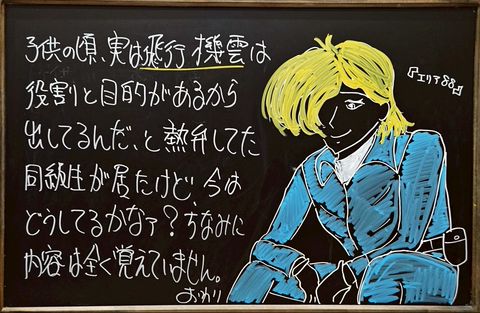 子供の頃、実は飛行機雲は
役割と目的があるから
出してるんだ、と熱弁してた
同級生が居たけど、今は
どうしてるかなァ？ちなみに
内容は全く覚えていません。
おわり
『エリア88』